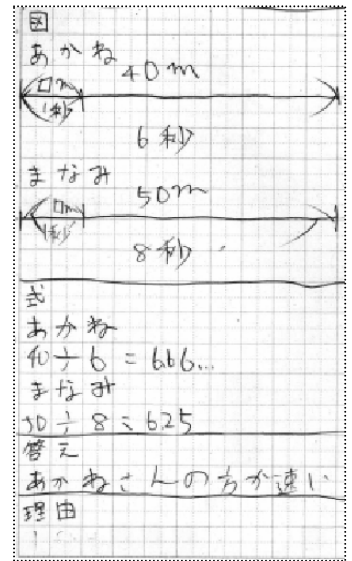 図
あかね
40m
□m
1秒
6秒
まなみ
50m
□m
1秒
8秒
式
あかね
40÷6=6.66...
まなみ
50÷8=6.25
答え
あかねさんの方が速い
理由